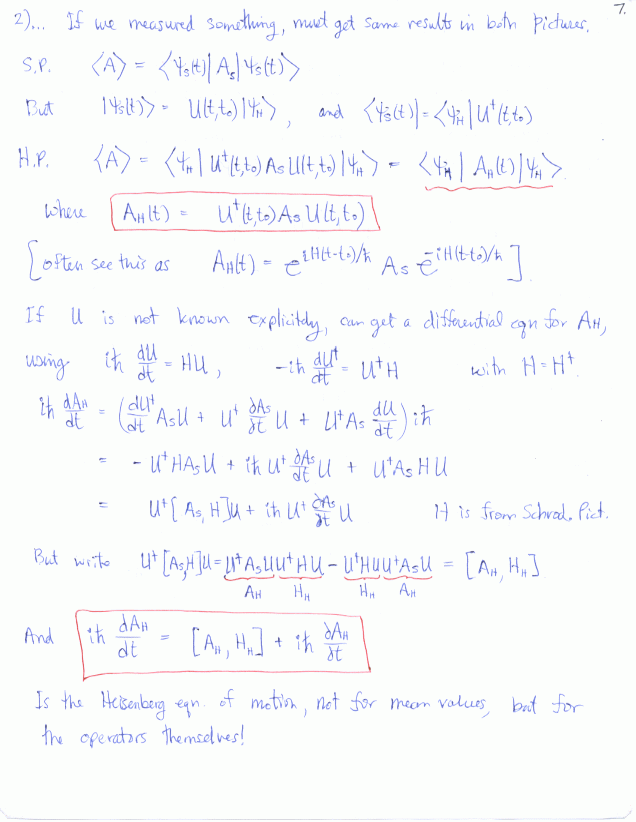 7.
2)... If we measured something, must get same results in both pictures.
S.P. ⟨A⟩ = ⟨ψs(t)|As|ψs(t)⟩
But |ψs(t)⟩ = U(t,t₀)|ψH⟩, and ⟨ψs(t)| = ⟨ψH|U†(t,t₀)
H.P. ⟨A⟩ = ⟨ψH|U†(t,t₀) As U(t,t₀)|ψH⟩ = ⟨ψH|AH(t)|ψH⟩.
where AH(t) = U†(t,t₀) As U(t,t₀)
[often see this as AH(t) = e^{iH(t-t₀)/ħ} As e^{-iH(t-t₀)/ħ}]
If U is not known explicitly, can get a differential eqn for AH,
using iħ dU/dt = HU, -iħ dU†/dt = U†H with H = H†.
iħ dAH/dt = (dU†/dt AsU + U† ∂As/∂t U + U†As dU/dt) iħ
= - U†HAsU + iħ U† ∂As/∂t U + U†AsHU
= U†[As, H]U + iħ U† ∂As/∂t U H is from Schrod. Pict.
But write U†[As,H]U = U†AsUU†HU - U†HUU†AsU = [AH, HH]
AH HH HH AH
And iħ dAH/dt = [AH, HH] + iħ ∂AH/∂t
Is the Heisenberg eqn. of motion, not for mean values, but for
the operators themselves!